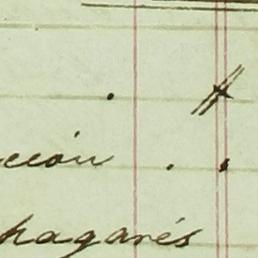 . #
cción . .
hagarés